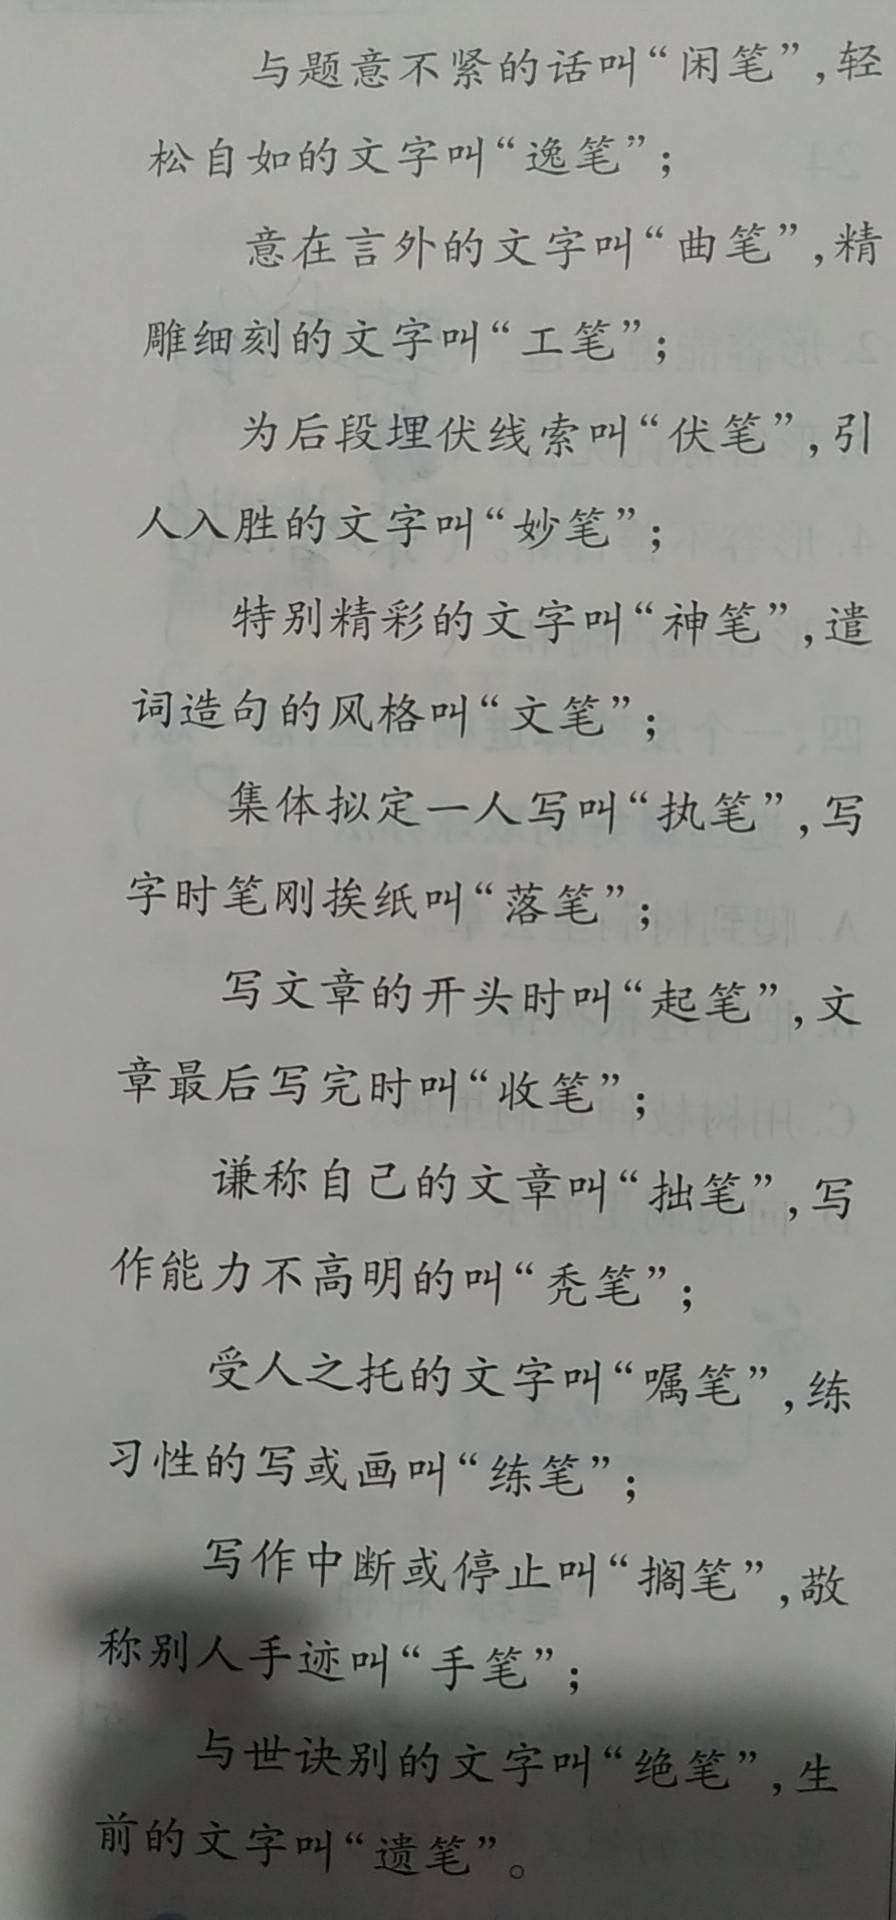 与题意不紧的话叫“闲笔”,轻
松自如的文字叫“逸笔”;
意在言外的文字叫“曲笔”,精
雕细刻的文字叫“工笔”;
为后段埋伏线索叫“伏笔”,引
人入胜的文字叫“妙笔”;
特别精彩的文字叫“神笔”,遣
词造句的风格叫“文笔”;
集体拟定一人写叫“执笔”,写
字时笔刚挨纸叫“落笔”;
写文章的开头时叫“起笔”,文
章最后写完时叫“收笔”;
谦称自己的文章叫“拙笔”,写
作能力不高明的叫“秃笔”;
受人之托的文字叫“嘱笔”,练
习性的写或画叫“练笔”;
写作中断或停止叫“搁笔”,敬
称别人手迹叫“手笔”;
与世诀别的文字叫“绝笔”,生
前的文字叫“遗笔”。